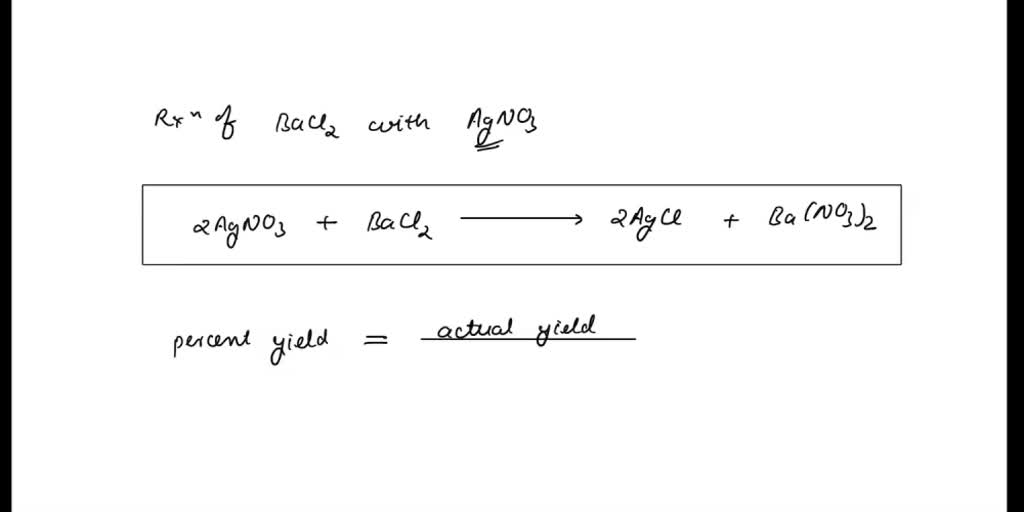 Rxⁿ of BaCl₂ with AgNO₃
2AgNO₃ + BaCl₂ ⟶ 2AgCl + Ba(NO₃)₂
percent yield = actual yield